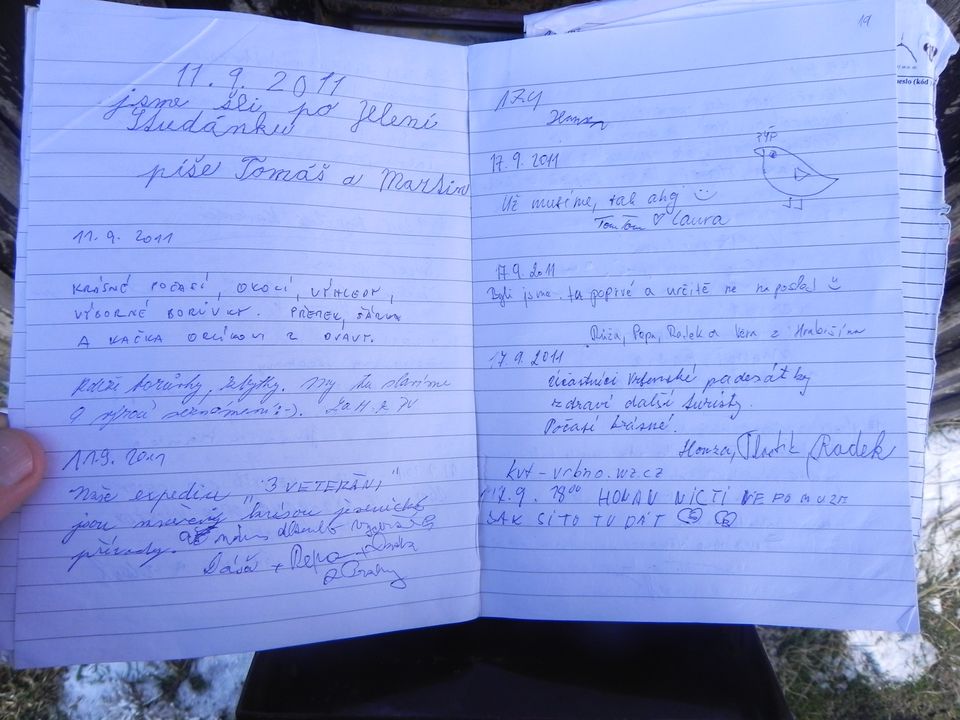 11.9.2011
jsme šli po Jelení
Studánku
píše Tomáš a Martin
11.9.2011
KRÁSNÉ POČASÍ, OKOLÍ, VÝHLEDY,
VÝBORNÉ BORŮVKY. PŘEMEK, ŠÁRKA
A KAČKA Z OPAVY.
my tu slavíme
9 výročí seznámení :-).
11.9.2011
Naše expedice "3 VETERÁNI"
jsou krásou jesenické
přírody.
Dáša + Pepa +
z Prahy
19
17.9
17.9.2011
PÍP
Už musíme, tak ahoj
TomTom ♡ Laura
17.9.2011
Byli jsme tu poprvé a určitě ne naposled
Růža, Pepa, Radek a Věra z
17.9.2011
Účastníci Vrbenské padesátky
zdraví další turisty.
Počasí krásné.
Honza, Radek
kvt-vrbno.wz.cz
17.9. 18⁰⁰ HONAN NIC TI NEPOMUŽE
JAK SI TO TU DÁT